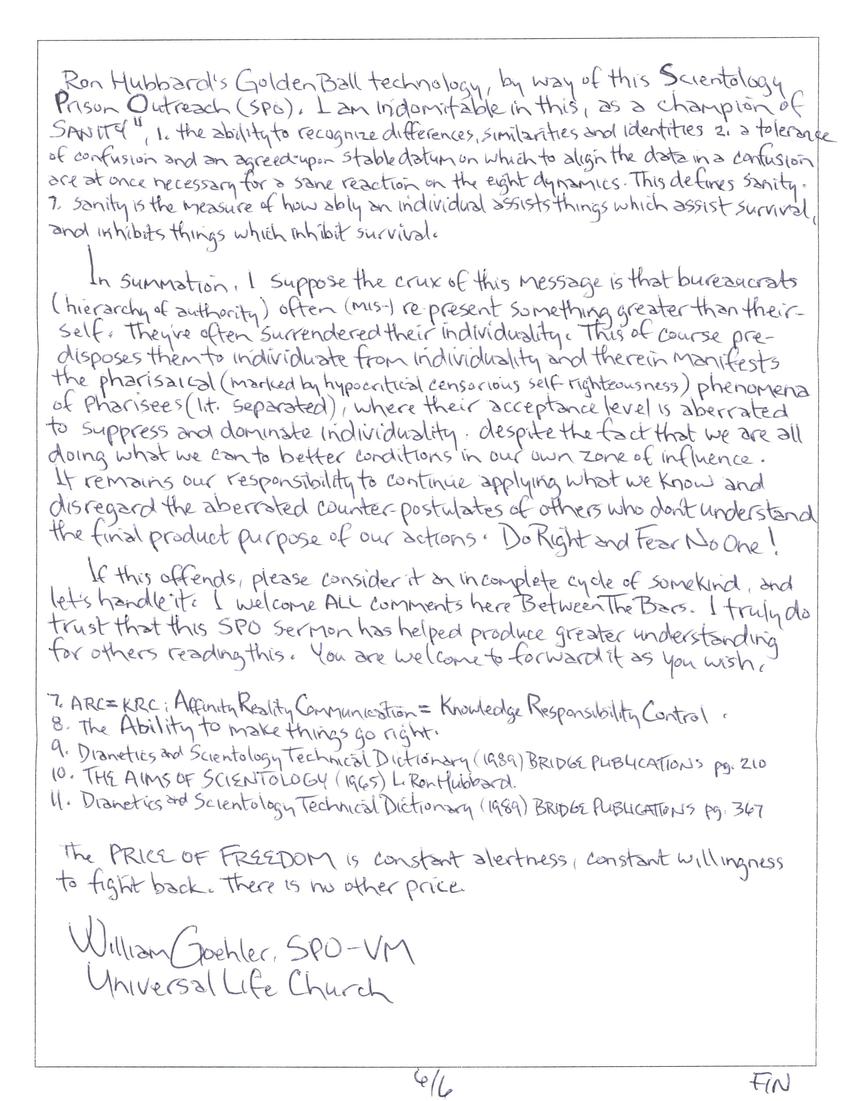 Ron Hubbard's GoldenBall technology, by way of this Scientology
Prison Outreach (SPO). I am indomitable in this, as a champion of
SANITY", 1. the ability to recognize differences, similarities and identities 2. a tolerance
of confusion and an agreed-upon stable datum on which to align the data in a confusion
are at once necessary for a sane reaction on the eight dynamics. This defines sanity.
7. sanity is the measure of how ably an individual assists things which assist survival,
and inhibits things which inhibit survival.
In summation, I suppose the crux of this message is that bureaucrats
(hierarchy of authority) often (mis-) re-present something greater than their-
self. They've often surrendered their individuality. This of course pre-
disposes them to individuate from individuality and therein manifests
the pharisaical (marked by hypocritical censorious self-righteousness) phenomena
of Pharisees (lit. separated), where their acceptance level is aberrated
to suppress and dominate individuality. despite the fact that we are all
doing what we can to better conditions in our own zone of influence.
It remains our responsibility to continue applying what we know and
disregard the aberrated counter-postulates of others who don't understand
the final product purpose of our actions. Do Right and Fear No One!
If this offends, please consider it an incomplete cycle of somekind, and
let's handle it. I welcome ALL comments here BetweenTheBars. I truly do
trust that this SPO sermon has helped produce greater understanding
for others reading this. You are welcome to forward it as you wish.
7. ARC=KRC: Affinity Reality Communication = Knowledge Responsibility Control.
8. The Ability to make things go right.
9. Dianetics and Scientology Technical Dictionary (1989) BRIDGE PUBLICATIONS pg. 210
10. THE AIMS OF SCIENTOLOGY (1965) L. Ron Hubbard.
11. Dianetics and Scientology Technical Dictionary (1989) BRIDGE PUBLICATIONS pg. 367
The PRICE OF FREEDOM is constant alertness, constant willingness
to fight back. There is no other price.
William Goehler, SPO-VM
Universal Life Church
6/6 FIN